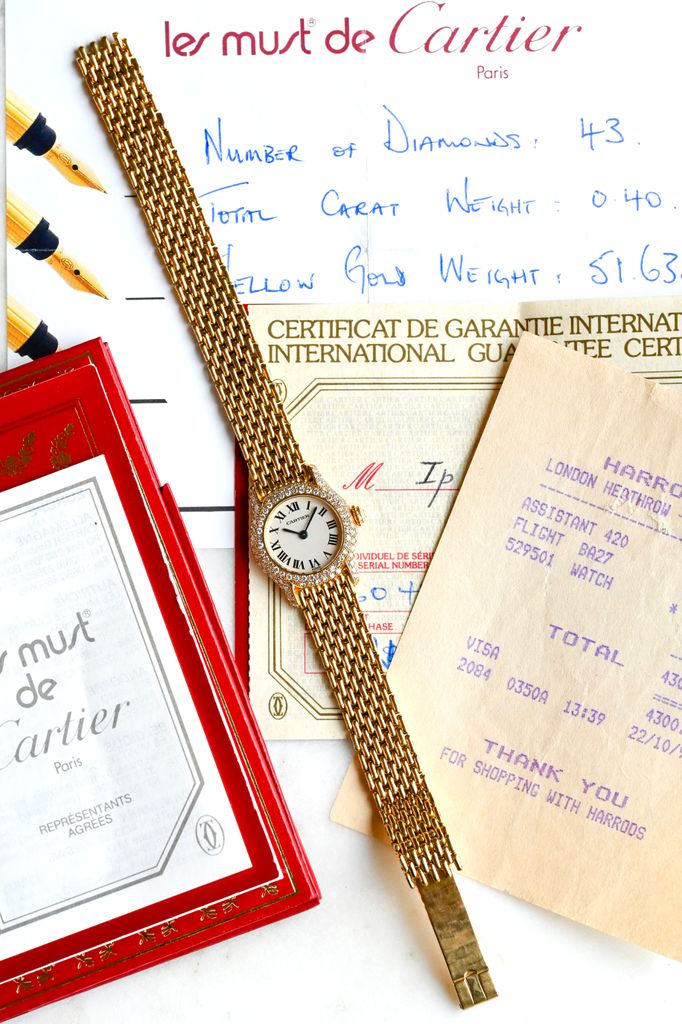 les must de Cartier
Paris
Number of Diamonds: 43.
Total Carat Weight: 0.40.
Yellow Gold Weight: 51.63
CERTIFICAT DE GARANTIE INTERNAT
INTERNATIONAL GUARANTEE CERT
M Ip
DIVIDUEL DE SÉRI
SERIAL NUMBER
HASE
CARTIER
XII I II III IIII V VI VII VIII IX X XI
HARRO
LONDON HEATHROW
ASSISTANT 420
FLIGHT BA27
529501 WATCH
*
TOTAL 430
VISA 4300
2084 0350A 13:39 22/10/9
THANK YOU
FOR SHOPPING WITH HARRODS
s must
de
Cartier
Paris
REPRÉSENTANTS
AGRÉÉS